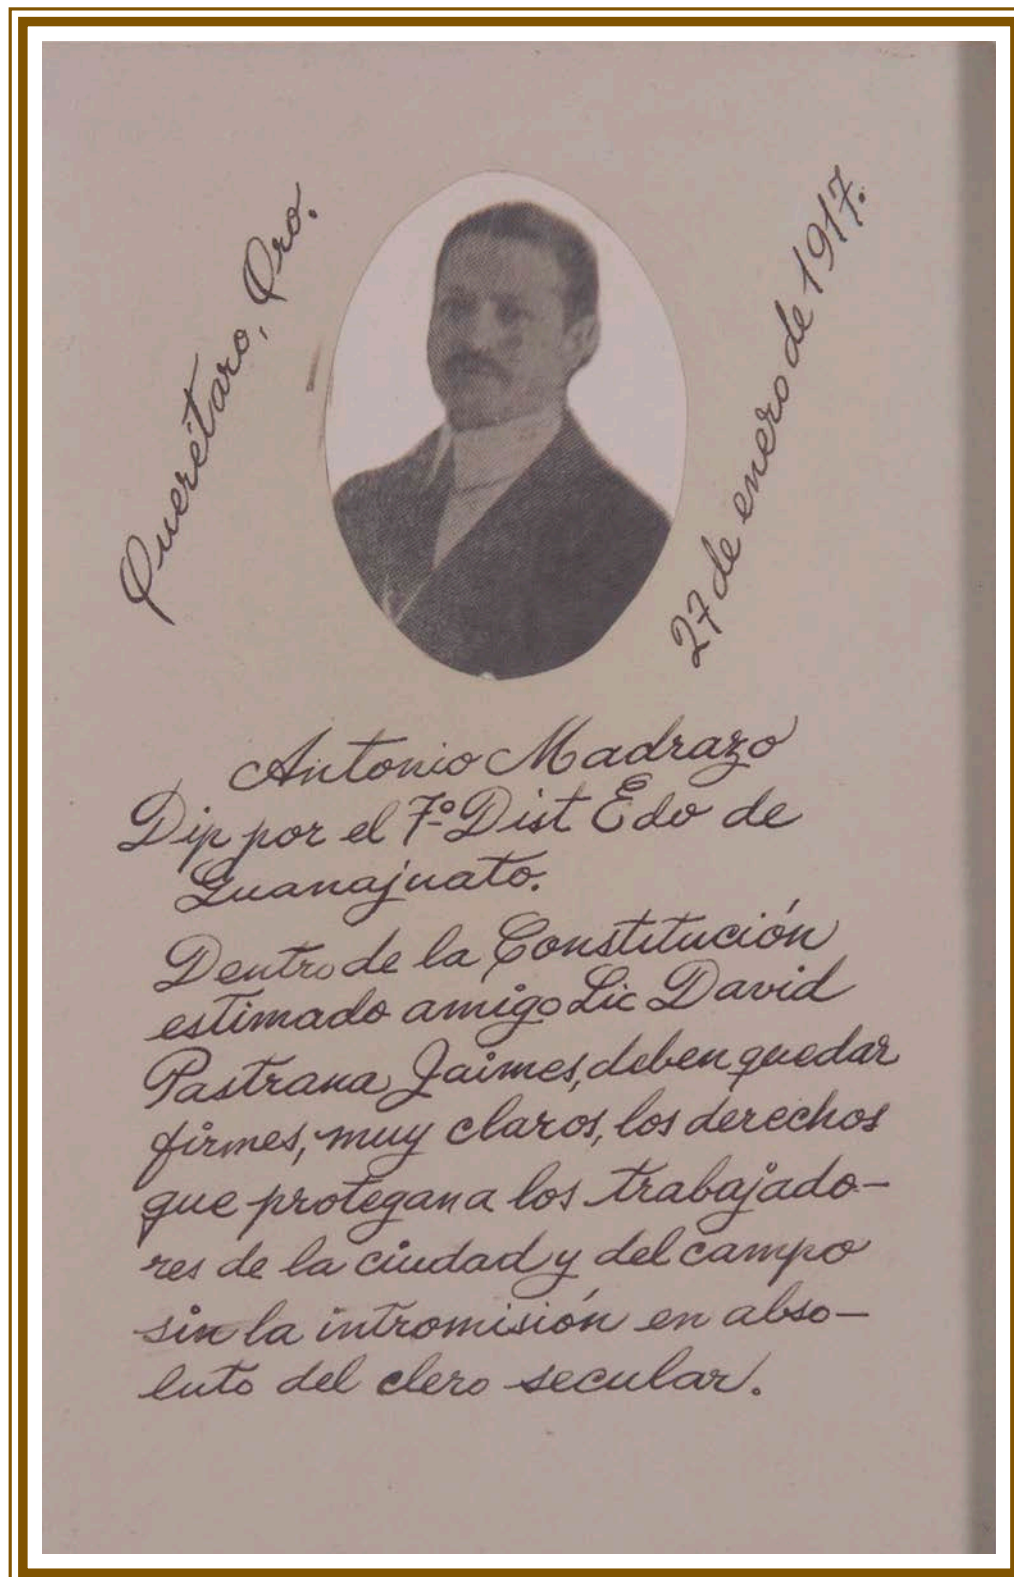 Querétaro, Qro.
27 de enero de 1917.
Antonio Madrazo
Dip por el 7º Dist Edo de
Guanajuato.
Dentro de la Constitución
estimado amigo Lic David
Pastrana Jaimes, deben quedar
firmes, muy claros, los derechos
que protegan a los trabajado-
res de la ciudad y del campo
sin la intromisión en abso-
luto del clero secular.